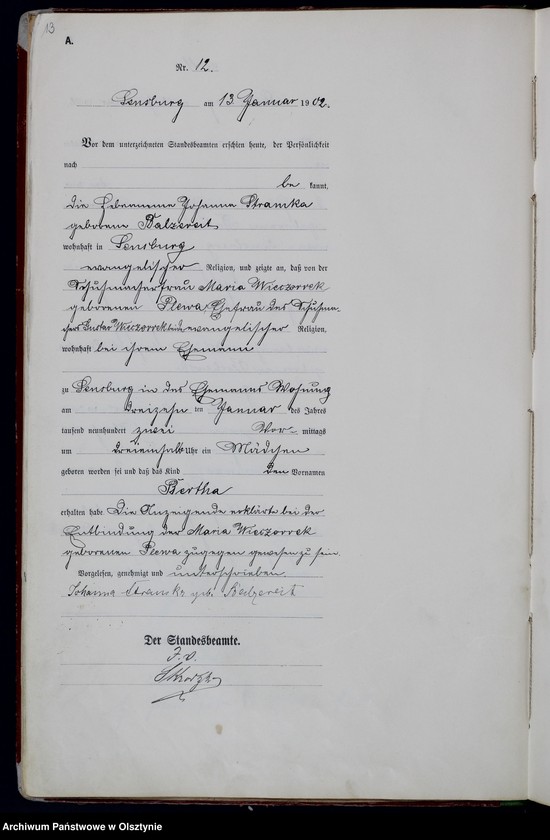 13
A.
Nr. 12.
Sensburg am 13 Januar 1902.
Vor dem unterzeichneten Standesbeamten erschien heute, der Persönlichkeit
nach
be kannt,
die Hebamme Johanna Stramka
geborene Balzereit
wohnhaft in Sensburg
evangelischer Religion, und zeigte an, daß von der
Schuhmacherfrau Maria Wieczorrek
geborenen Plewa, Ehefrau des Schuhma-
chers Gustav Wieczorrek evangelischer Religion,
wohnhaft bei ihrem Ehemann
zu Sensburg in des Ehemanns Wohnung
am dreizehn ten Januar des Jahres
tausend neunhundert zwei Vor- mittags
um dreieinhalb Uhr ein Mädchen
geboren worden sei und daß das Kind den Vornamen
Bertha
erhalten habe. Die Anzeigende erklärt bei der
Entbindung der Maria Wieczorrek
geborenen Plewa zugegen gewesen zu sein.
Vorgelesen, genehmigt und unterschrieben.
Johanna Stramka geb. Balzereit
Der Standesbeamte.
J. V.
Archiwum Państwowe w Olsztynie